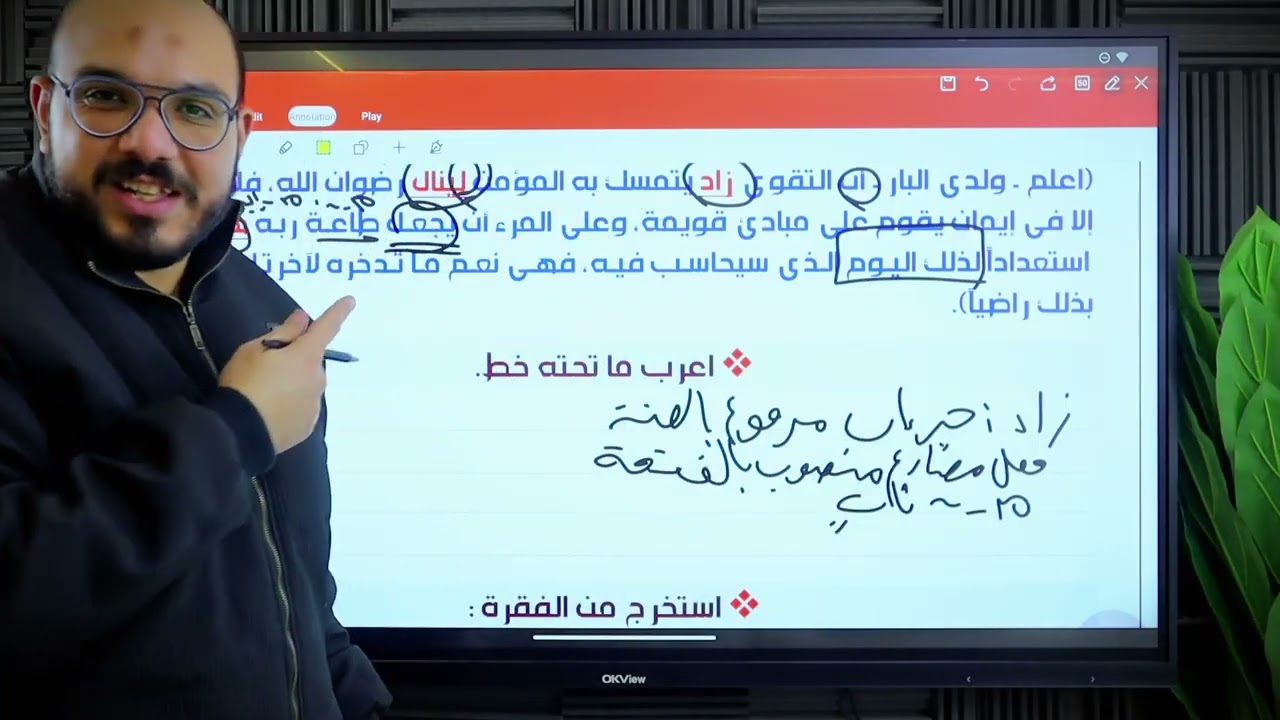 Annotation Play
50
(اعلم - ولدي البار - أن التقوى زاد يتمسك به المؤمن لينال رضوان الله، فلا
إلا في إيمان يقوم على مبادئ قويمة، وعلى المرء أن يجعل طاعة ربه
استعداداً لذلك اليوم الذي سيحاسب فيه، فهي نعم ما تدخره لآخرتك
بذلك راضياً).
اعرب ما تحته خط.
زاد : خبر إن مرفوع بالضمة
فعل مضارع منصوب بالفتحة
استخرج من الفقرة :
OKView